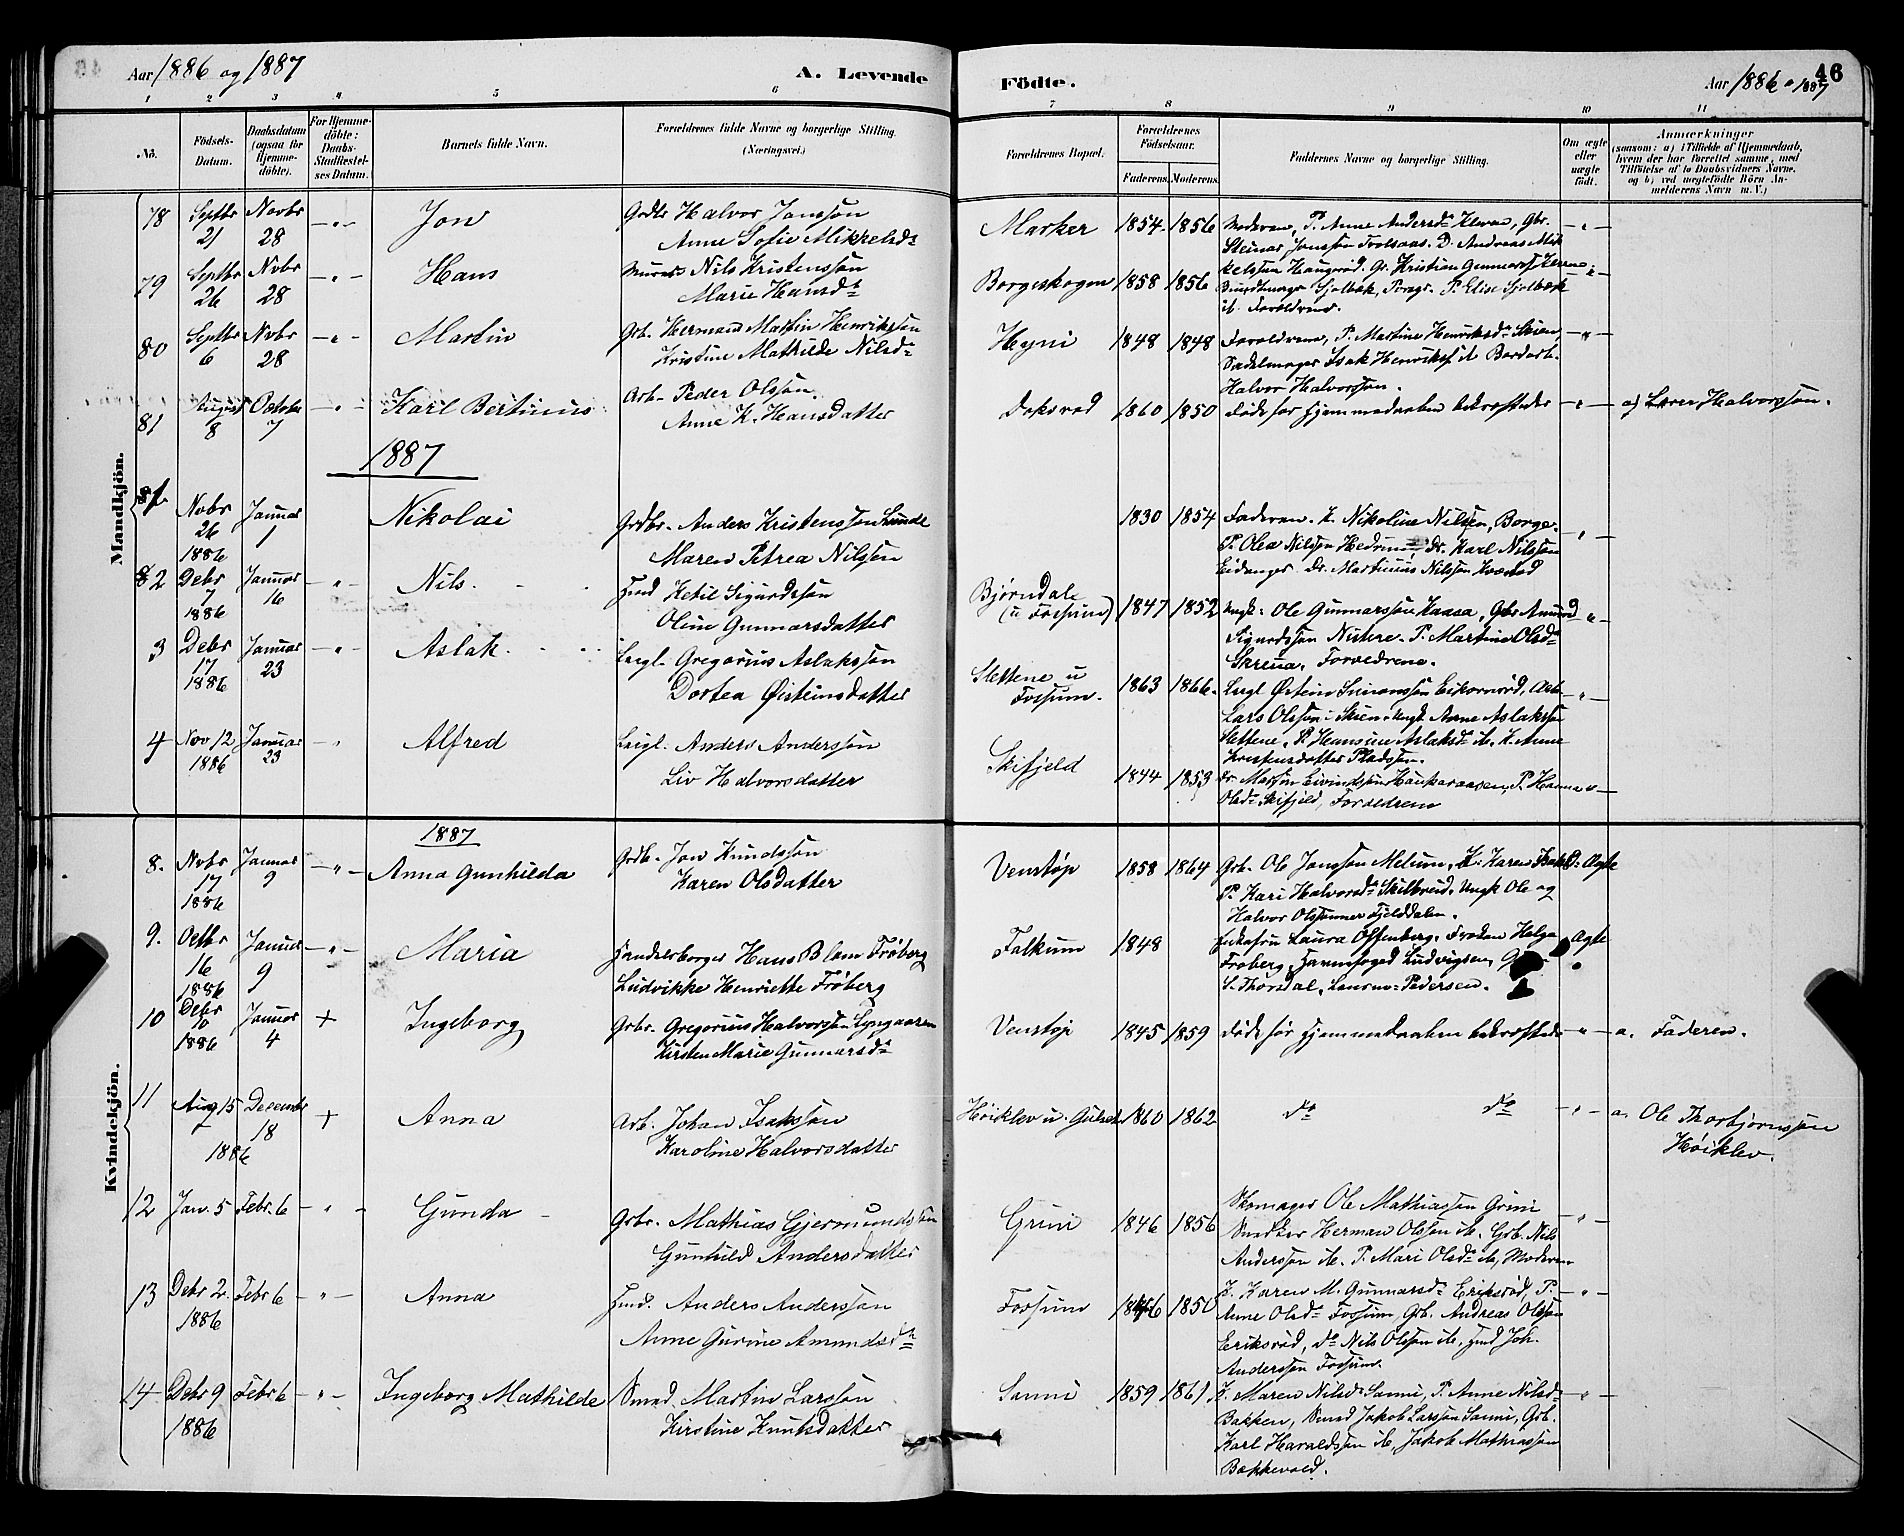 Aar 1886 og 1887
A. Levende
Födte.
Aar 1886 o 1887
46
1 2 3 4 5 6 7 8 9 10 11
No.
Födsels-
Datum.
Daabsdatum
(ogsaa for
Hjemme-
döbte).
For Hjemme-
döbte:
Daabs-
Stadfæstel-
ses Datum.
Barnets fulde Navn.
Forældrenes fulde Navne og borgerlige Stilling.
(Næringsvei.)
Forældrenes Bopæl.
Forældrenes
Födselsaar.
Faderens. Moderens.
Faddernes Navne og borgerlige Stilling.
Om ægte
eller
uægte
födt.
Anmærkninger
(saasom: a) i Tilfælde af Hjemmedaab,
hvem der har forrettet samme, med
Tilföielse af to Daabsvidners Navne,
og b) ved uægtefödte Börn An-
melderens Navn m. V.)
Mandkjön.
78 Septbr 21 Novbr 28 - " - Jon
Grdbr Halvor Jonssøn
Anne Sofie Mikkelsd.
Marker 1854 1856
Moderen, P. Anne Andersd. Gbr.
Steinar Jonssøn D. Andreas Mik
79 Septbr 26 Nvbr 28 - " - Hans
Murer Nils Kristenssøn
Marie Hansd.
Borgeskogen 1858 1856
kelssøn Haugerød. Gr. Kristian Gunnars
Bundtmager Sjølbæk, P. Elise Sjølbæk
Forældrene.
80 Septbr 6 Nvbr 28 - " - Martin
Grb. Herman Martin Henrikssøn
Kristine Mathilde Nilsd.
Heyni 1848 1848
Forældrene, P. Martine Henriksd. Skien,
Sadelmager Isak Henriks
Halvor Halvorssøn.
81 August 8 October 7 - " - Karl Bertinus
Arb. Peder Olssøn
Anne K. Hansdatter
1860 1850
døde før Hjemmedaaben bekræftedes - " - a) Lærer Halvorssøn.
1887
81 Nvbr 26 1886 Januar 1 Nikolai
Grdbr. Anders Kristenssøn Lunde
Maren Petrea Nilssøn
1830 1854
Faderen. K. Nikoline Nilsen, Borge.
P. Olea Nilssøn Hedrum, Dr. Karl Nilssøn
Eidanger Dr. Martinius Nilssøn
82 Debr 7 1886 Januar 16 - " - Nils.
Hmd Ketil Sigurdssøn
Oline Gunnarsdatter
Bjørndale
(u Fossum) 1847 1852
Ungk. Ole Gunnarssøn Kaasa, Gbr Amund
Sigurdssøn P. Martine Olsd.
Skreua, Forældrene.
3 Debr 17 1886 Januar 23 - " - Aslak.
Leigl. Gregorius Aslakssøn
Dortea Øisteinsdatter
Slettene u
Fossum. 1863 1866.
Leigl Østein Simonssøn Eikornrød, Arb.
Lars Olssøn i Skien Ungk. Arne Aslakssøn
Slettene, P. Hansine Aslaksd. K. Anne
Kristensdatter Pladsen.
4 Nov 12 1886 Januar 23 - " Alfred
Leigl. Anders Anderssøn
Liv Halvorsdatter
Skifjeld 1844 1853
Dr. Martin Eivindssøn P. Hanna
Olsd. Skifjeld, Forældrene
Kvindekjön.
1887
8. Nvbr 17 1886 Januar 9 - " - Anna Gunhilda
Grdb. Jon Knudssøn
Karen Olsdatter
Venstøp 1858 1864
Grb. Ole Jonssøn Melum, K. Karen
P. Kari Halvorsd. Skilbred, Ungk Ole og
Halvor Olssønner Fjelddalen.
Ægte
9. Octbr 16 1886 Januar 9 - " - Maria
Handelsborger Hans Blom Frøberg
Ludvikke Henriette Frøberg
Falkum 1848
Enkefru Laura Offenberg, Frøken Helga
Frøberg, Havnefoged Ludvigsen,
S. Thorsdal, Pedersen.
Ægte
10 Debr 10 1886 Januar 4 + Ingeborg
Grbr. Gregorius Halvorssøn Lyngaaren
Kirsten Marie Gunnarsd.
Venstøp 1845 1859
døde før Hjemmedaaben bekræftedes - " - a. Faderen.
11 Aug 15 1886 December 18 + Anna
Arb. Johan Isakssøn
Karoline Halvorsdatter
Høiklev u. Gulset 1860 1862
do do - " - a. Ole Thorbjørnssøn
Høiklev.
12 Jan. 5 Febr. 6 - " - Gunda
Grbr. Mathias Gjermundssøn
Gunhild Andersdatter
Grini 1846 1856
Skomager Ole Mathiassøn Grini
Snedker Herman Olssøn ib. Grb. Nils
Anderssøn ib. P. Mari Olsd. ib, Moderen
13 Debr 2. 1886 Febr 6 - " - Anna
Hmd. Anders Anderssøn
Anne Gurine Amundsd.
Fossum 1846 1850
K. Karen M. Gunnarsd. Eriksrød, P.
Anne Olsd. Fossum, Grb. Andreas Olssøn
Eriksrød, do Nils Olssøn ib, Hmd Joh.
Anderssøn Fossum.
14 Debr 9 1886 Febr 6 - " - Ingeborg Mathilde
Smed Martin Larssøn
Kirstine Knutsdatter
Sanni 1859 1861
K. Maren Nilsd. Sanni, P. Anne Nilsd.
Bakken, Smed Jakob Larssøn Sanni, Grb.
Karl Haraldssøn ib, Jakob Mathiassøn
Bakkevold.